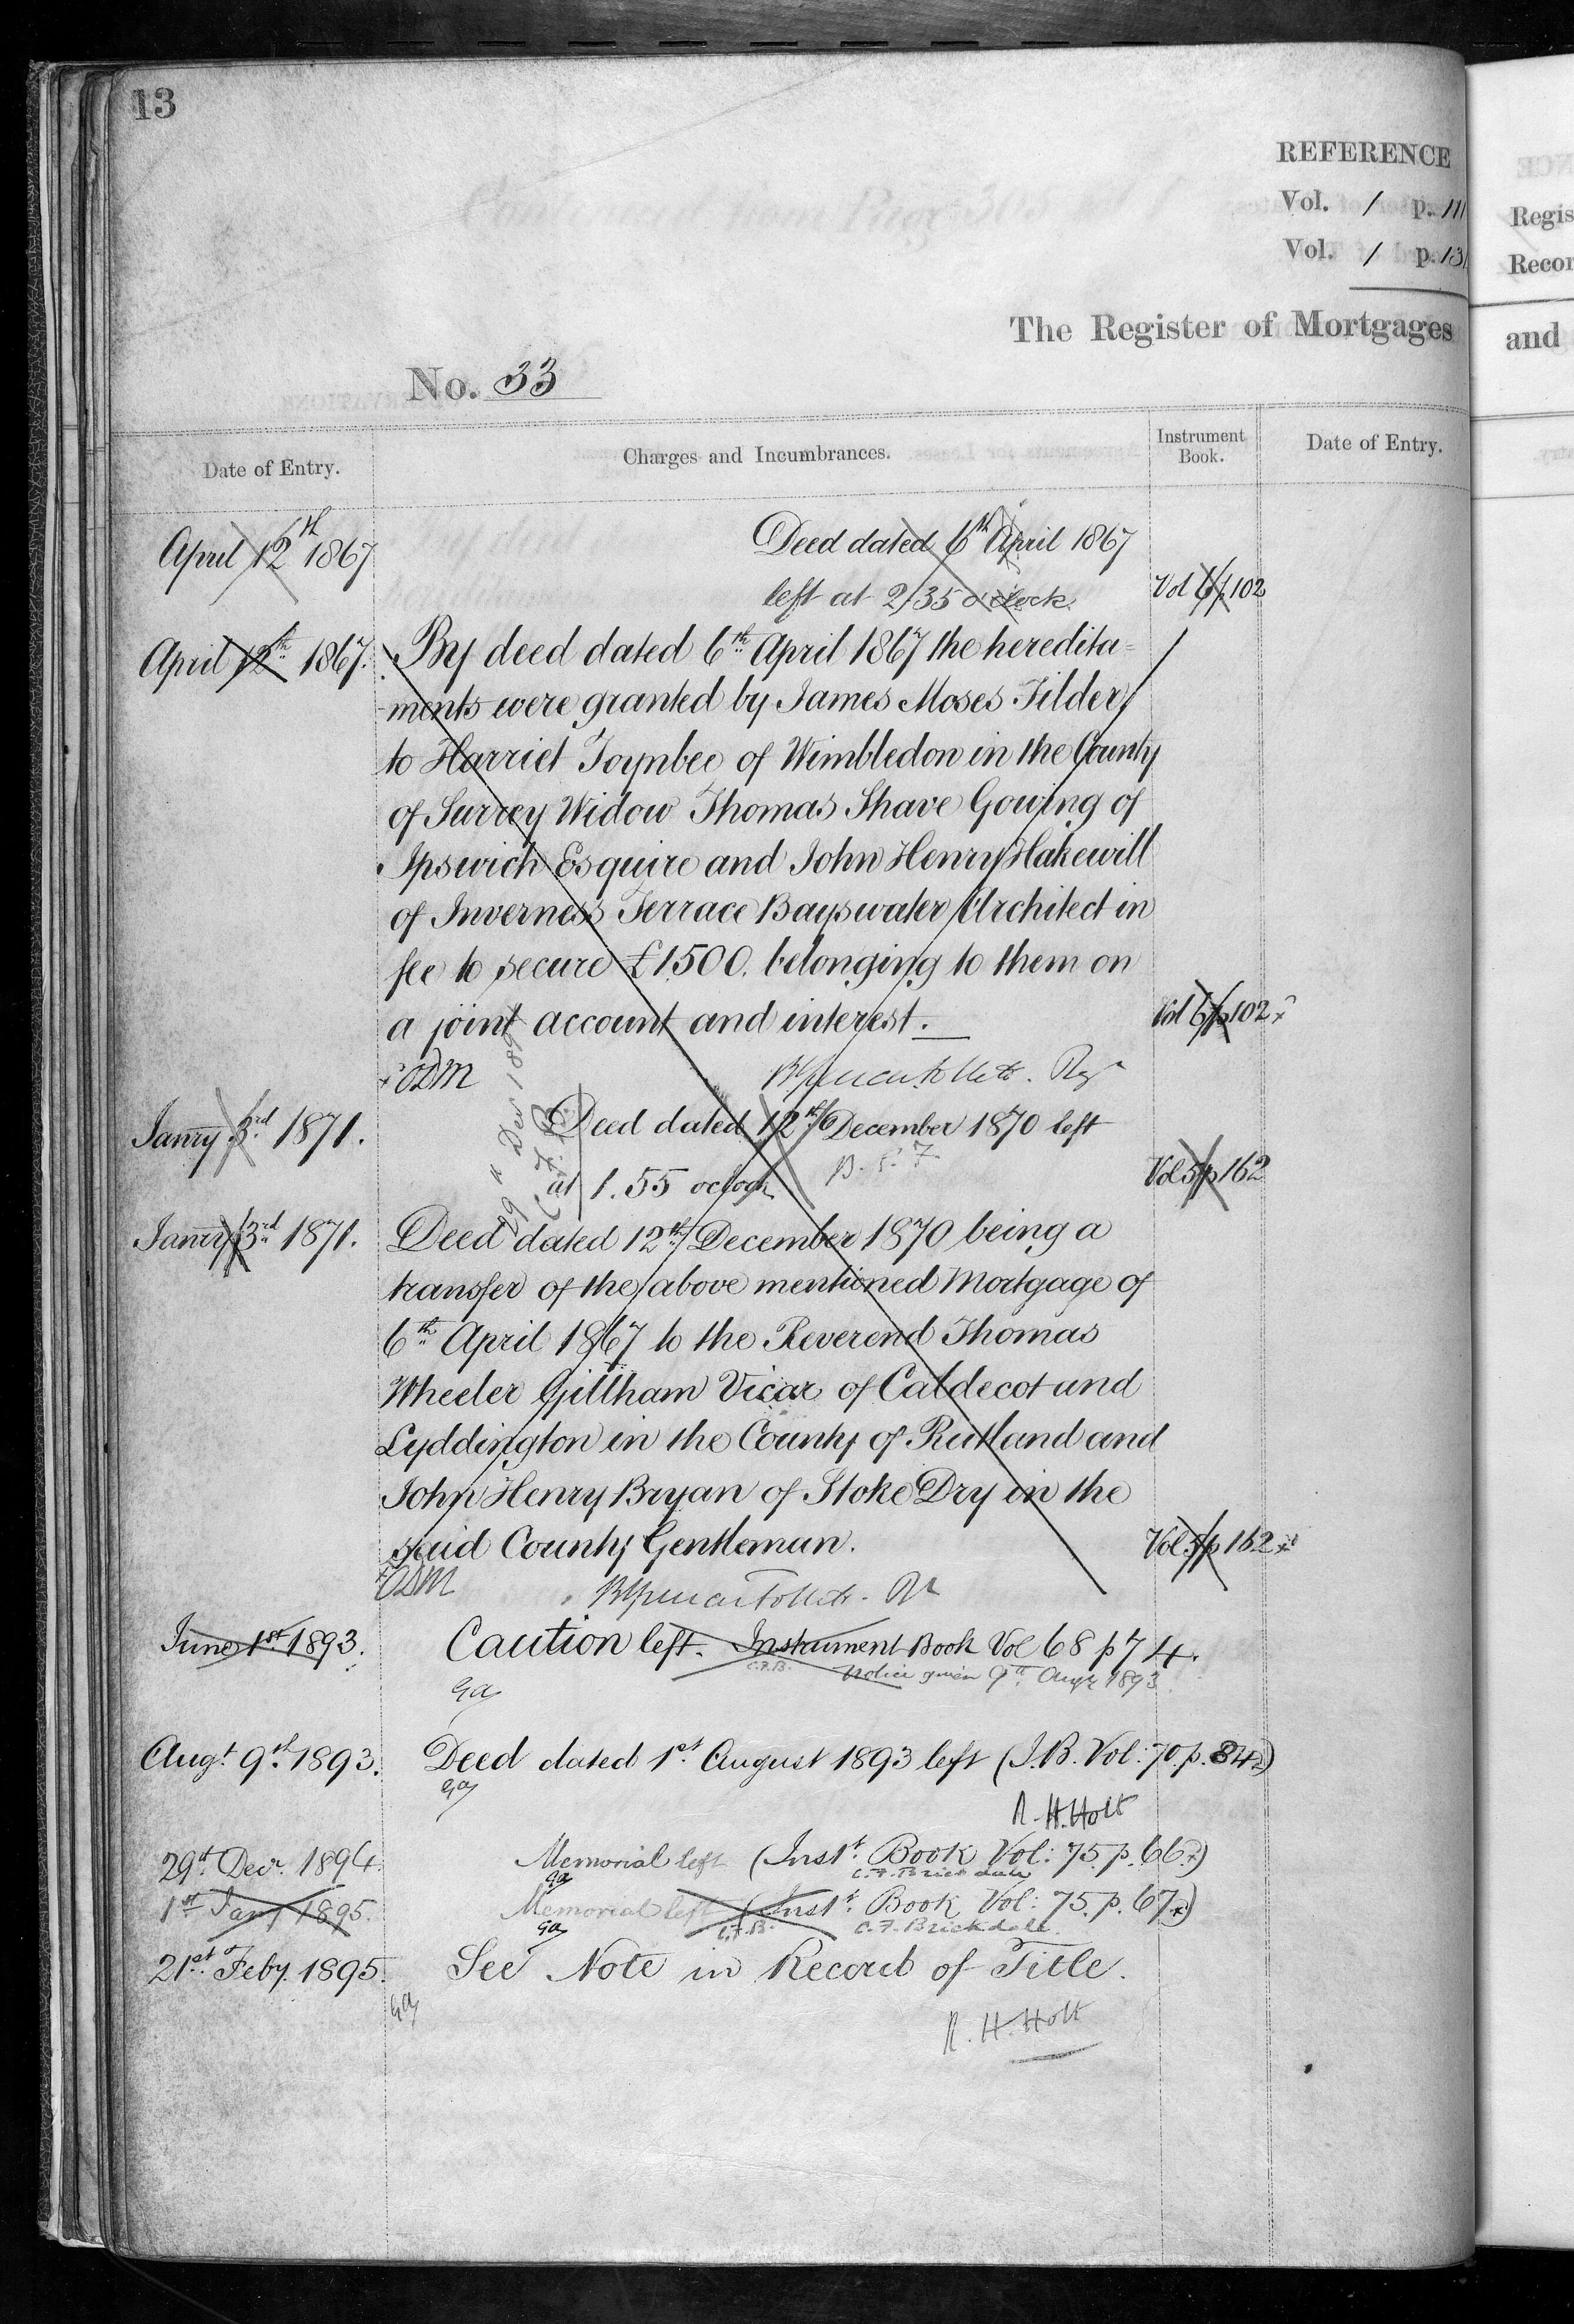 13
REFERENCE
Vol. 1 p. 111
Vol. 1 p. 131
The Register of Mortgages
No. 33
Date of Entry.
Charges and Incumbrances.
Instrument Book.
Date of Entry.
April 12th 1867
Deed dated 6th April 1867
left at 2/35 o'clock
Vol 6 p 102
April 12th 1867.
By deed dated 6th April 1867 the heredita=
ments were granted by James Moses Tilder
to Harriet Toynbee of Wimbledon in the County
of Surrey Widow Thomas Shave Gowing of
Ipswich Esquire and John Henry Hakewill
of Inverness Terrace Bayswater Architect in
fee to secure £1500. belonging to them on
a joint account and interest.
Vol 6 p 102
ODM
Janry 3rd 1871.
Deed dated 12th December 1870 left
at 1.55 oclock
B. S. F.
Vol 5 p 162
Janry 3rd 1871.
Deed dated 12th December 1870 being a
transfer of the above mentioned Mortgage of
6th April 1867 to the Reverend Thomas
Wheeler Gillham Vicar of Caldecot and
Lyddington in the County of Rutland and
John Henry Bryan of Stoke Dry in the
said County Gentleman.
Vol 5 p 162
ODM
June 1st 1893.
Caution left. Instrument Book Vol 68 p 74.
C.F.B.
Notice given 9th Augt 1893
Ga
Augt 9th 1893.
Deed dated 1st August 1893 left (I.B. Vol: 70. p. 84)
Ga
R. H. Holt
29th Decr. 1894.
Memorial left (Inst. Book Vol: 75. p. 66)
Ga
C. F. Brickdale
1st Jany 1895.
Memorial left (Inst. Book Vol: 75. p. 67)
Ga
C.F.B.
C. F. Brickdale
21st Feby. 1895.
See Note in Record of Title.
Ga
R. H. Holt
and
Regis
Recor